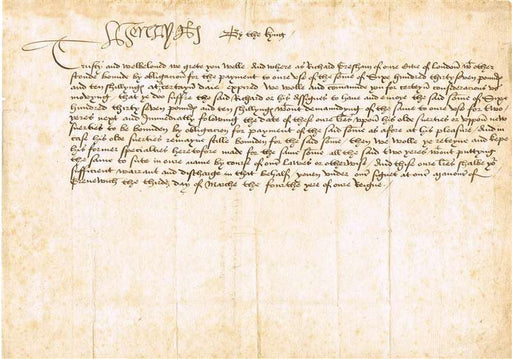 Henry R By the kyng
Trusty and welbeloved we grete you welle And where as Richard Gresham of oure Citie of London wt other
stonde bounde by obligacion for the payment to oure use of the some of Sixe hundred thirty seven pounds
and ten shyllyngs at a certayn daie expired We wolle and comaunde you for certeyn consideracions us
moevyng that ye doo suffre the said Richard or his assignes to have and occupie the said some of Sixe
hundred thirty seven pounds and ten shyllyngs wtout demaundyng of the same to oure use for two
yeres next and Immediatly folowing the date of these oure lres upon his olde suerties or uppon new
suerties to be bounden by obligacion for payment of the said some as afore at his pleasure And in
case his olde suerties remayne stille bounden for the said some then we wolle ye reteyne and kepe
his former specialties heretofore made for the same some all the said two yeres wtout puttyng
the same to sute in oure name by course of oure Lawes or otherwise And thise oure lres shalbe yor
sufficient warrant and discharge in that behalf yoven under our signet at our manour of
the third day of Marche the fourthe yere of our Reigne